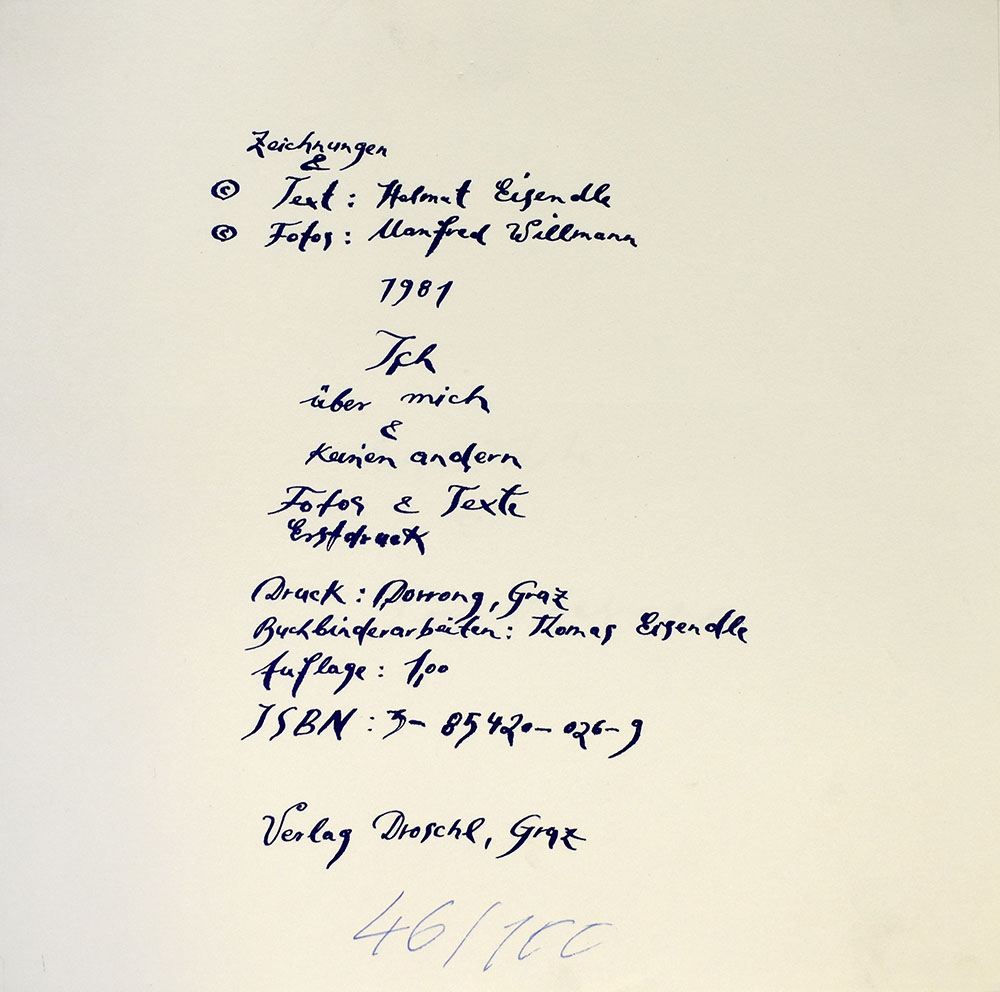 Zeichnungen
&
© Text: Helmut Eisendle
© Fotos: Manfred Willmann
1981
Ich
über mich
&
keinen andern
Fotos & Texte
Erstdruck
Druck: Dorrong, Graz
Buchbinderarbeiten: Thomas Eisendle
Auflage: 100
ISBN: 3-85420-026-9
Verlag Droschl, Graz
46/100